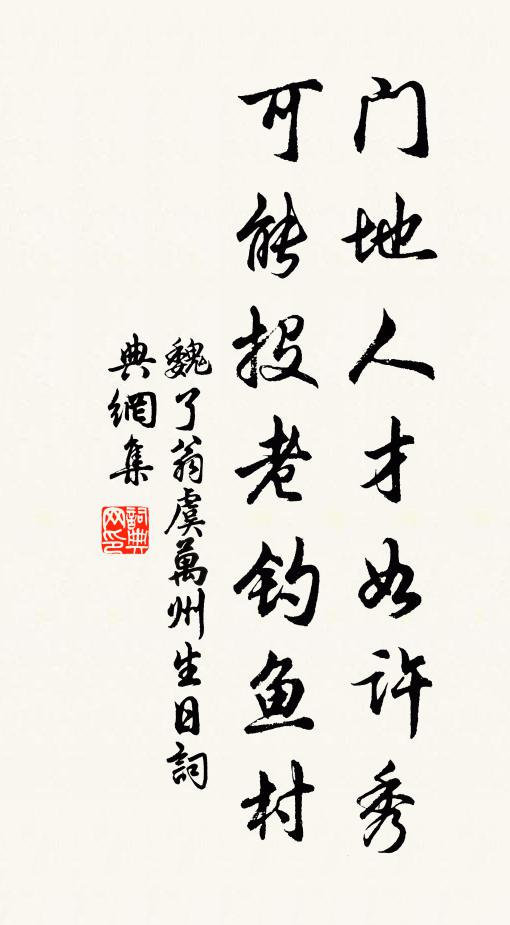 门地人才如许秀
可能投老钓鱼村
魏了翁虞萬州生日詞
典網集
詞典网印